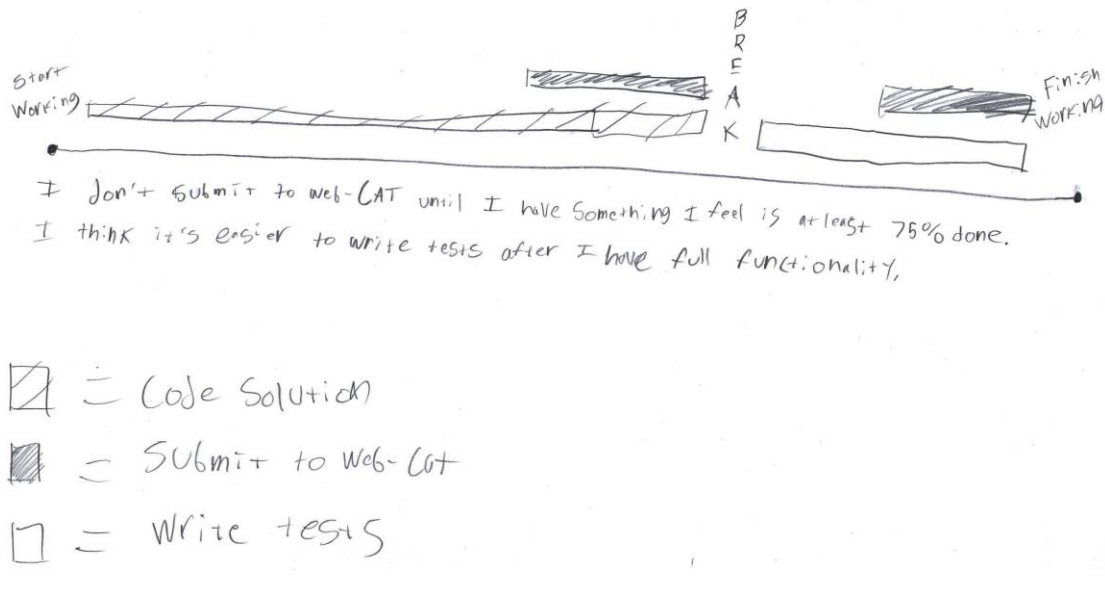 BREAK
Start
Working
Finish
Working
I don't submit to Web-CAT until I have something I feel is at least 75% done.
I think it's easier to write tests after I have full functionality.
= Code Solution
= Submit to Web-Cat
= Write tests